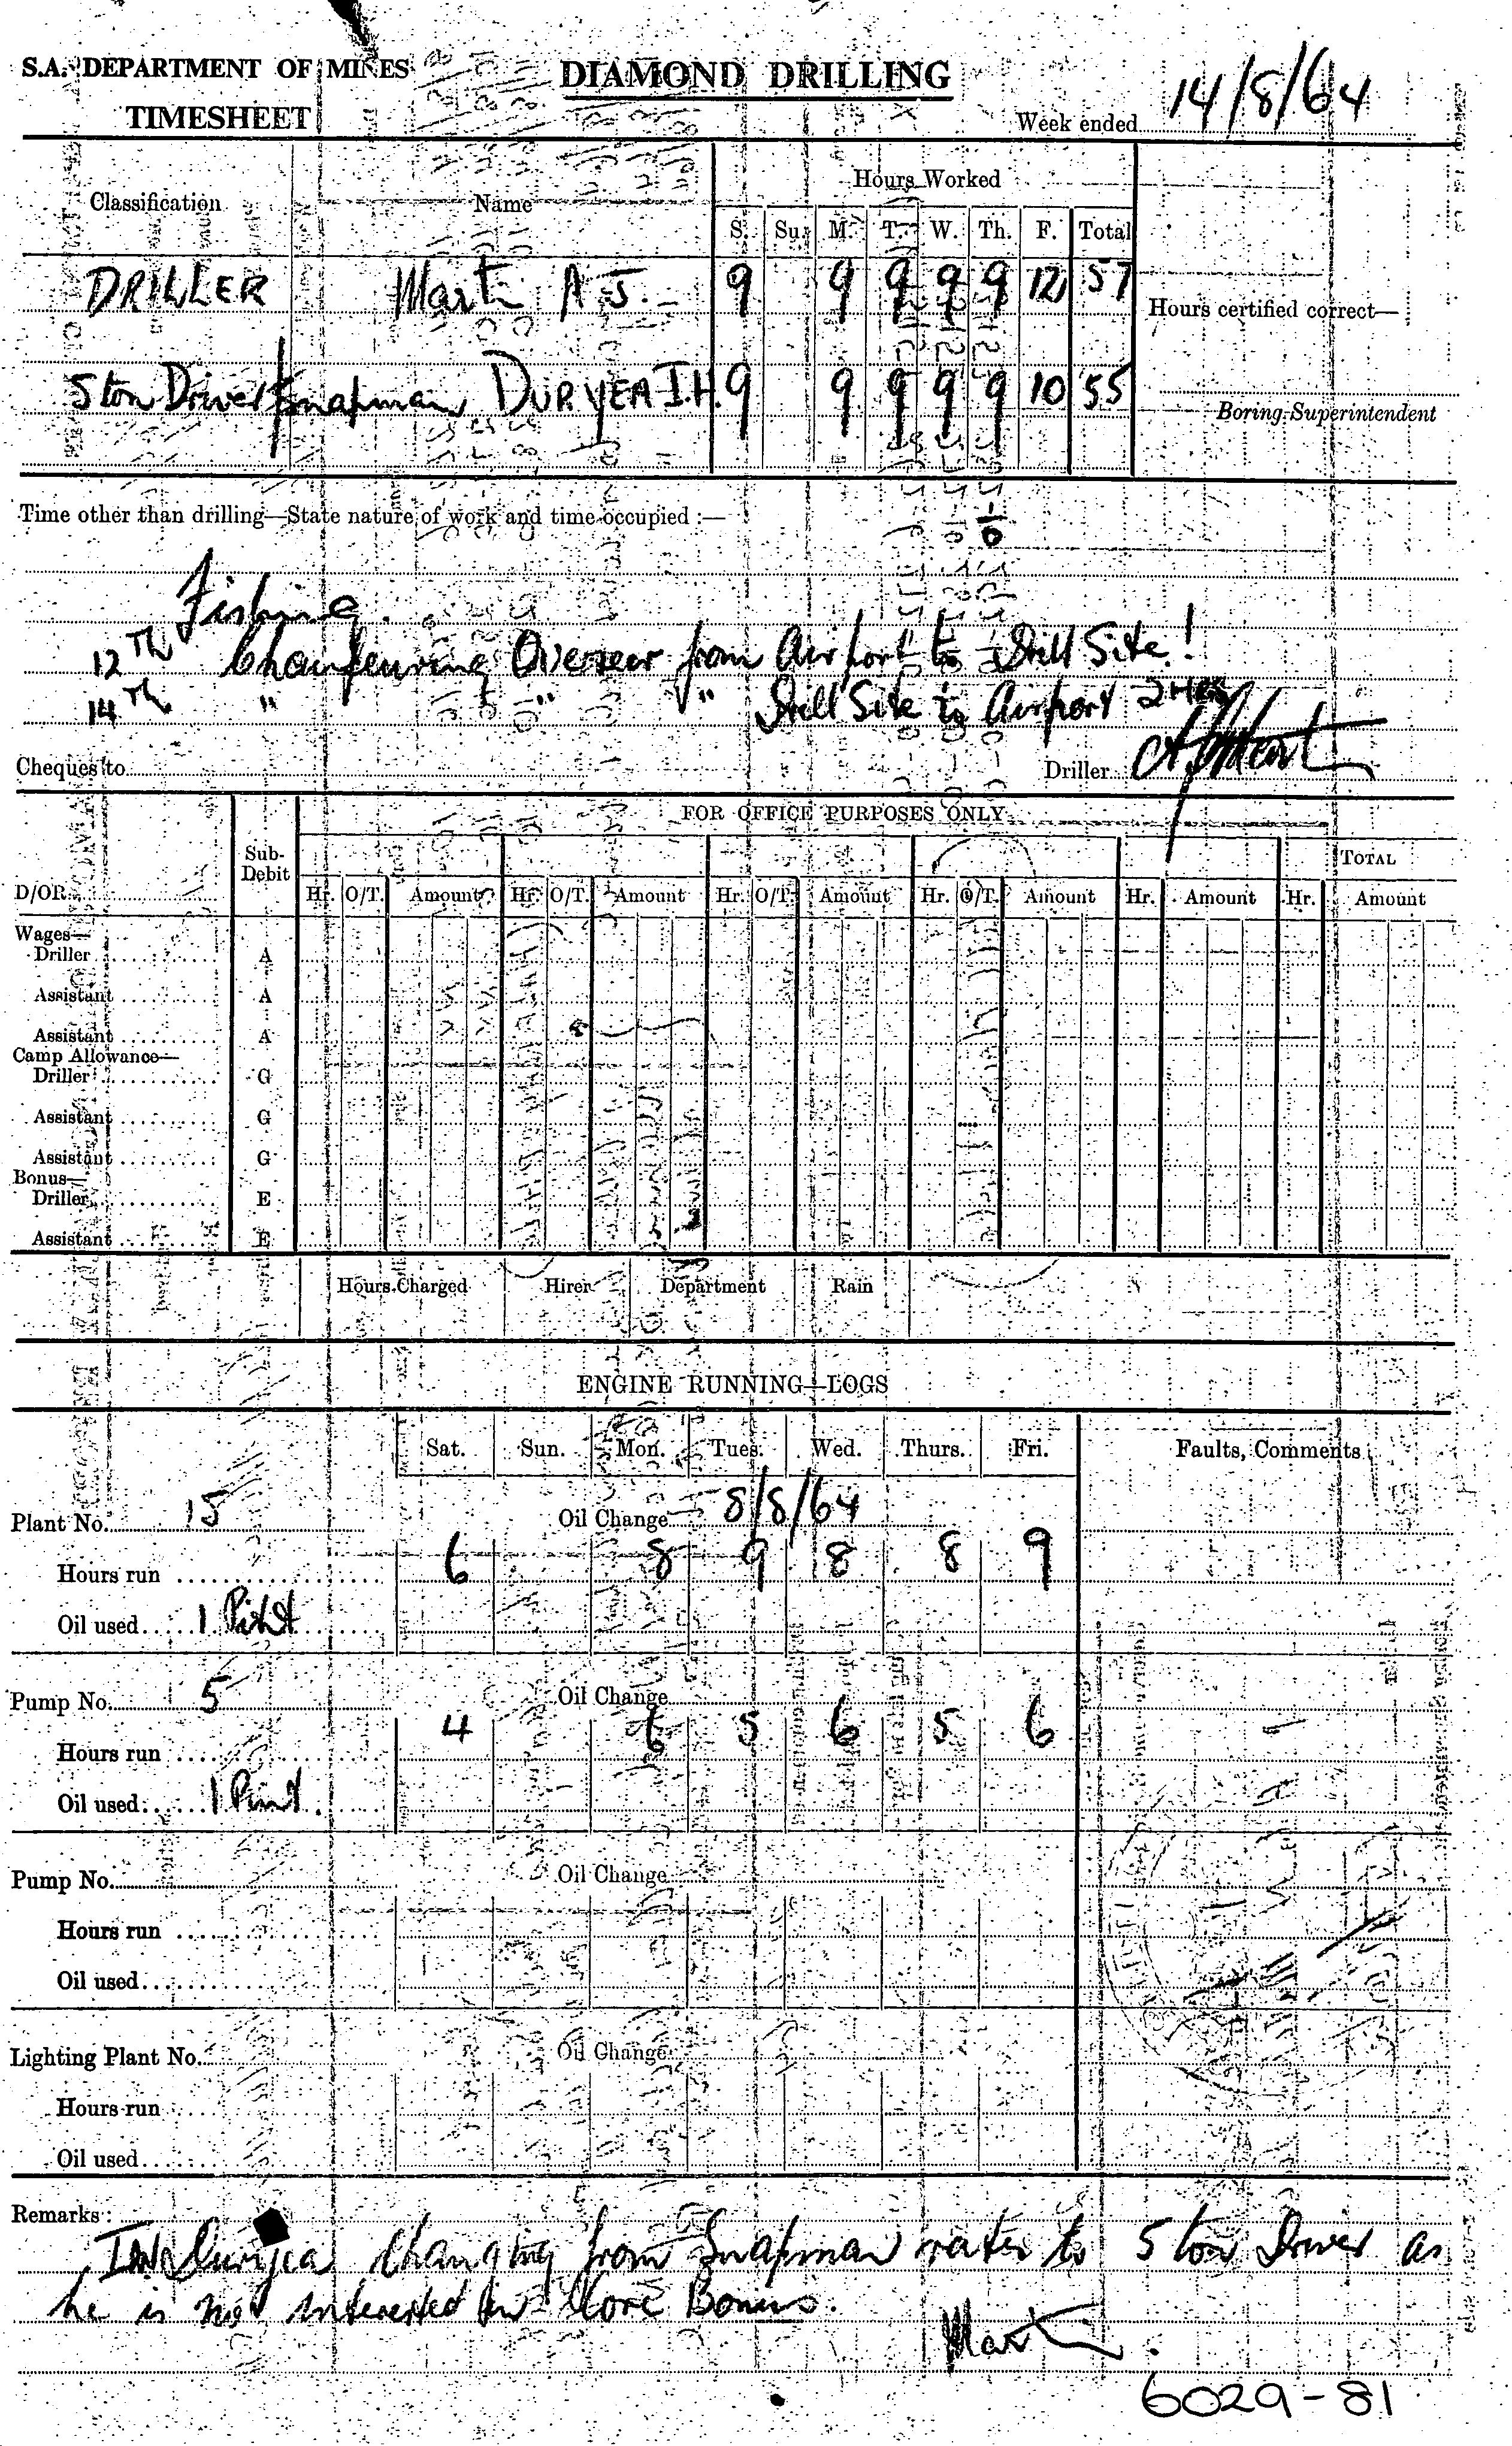 S.A. DEPARTMENT OF MINES
DIAMOND DRILLING
TIMESHEET
Week ended 14/8/64
Classification Name Hours Worked
S. Su. M. T. W. Th. F. Total
DRILLER Martin A J. 9 9 9 9 9 12 57
Hours certified correct—
5 ton Driver/Snapman DURYEA I.H. 9 9 9 9 9 10 55
Boring Superintendent
Time other than drilling—State nature of work and time occupied :—
Fishing.
12th Chaufeuring Overseer from Airport to Drill Site!
14th " " " Drill Site to Airport 2 Hrs
Cheques to Driller
FOR OFFICE PURPOSES ONLY
D/OR Sub-Debit Hr. O/T. Amount Hr. O/T. Amount Hr. O/T. Amount Hr. O/T. Amount Hr. Amount TOTAL Hr. Amount
Wages—
Driller A
Assistant A
Assistant A
Camp Allowance—
Driller G
Assistant G
Assistant G
Bonus—
Driller E
Assistant E
Hours Charged Hirer Department Rain
ENGINE RUNNING—LOGS
Sat. Sun. Mon. Tues. Wed. Thurs. Fri. Faults, Comments
Plant No. 15 Oil Change 8/8/64
Hours run 6 8 9 8 8 9
Oil used 1 Pint
Pump No. 5 Oil Change
Hours run 4 6 5 6 5 6
Oil used 1 Pint.
Pump No. Oil Change
Hours run
Oil used
Lighting Plant No. Oil Change
Hours run
Oil used
Remarks :
Duryea changing from Snapman rates to 5 ton Driver as
he is not interested in Core Bonus.
Martin.
6029-81